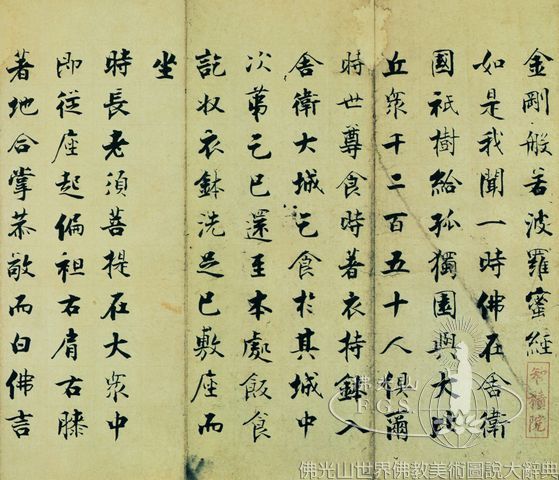 金剛般若波羅蜜經
如是我聞一時佛在舍衛
國祇樹給孤獨園與大比
丘眾千二百五十人俱爾
時世尊食時著衣持鉢入
舍衛大城乞食於其城中
次第乞已還至本處飯食
訖收衣鉢洗足已敷座而
坐
時長老須菩提在大眾中
即從座起偏袒右肩右膝
著地合掌恭敬而白佛言
佛光山
F.G.S.
佛光山世界佛教美術圖說大辭典